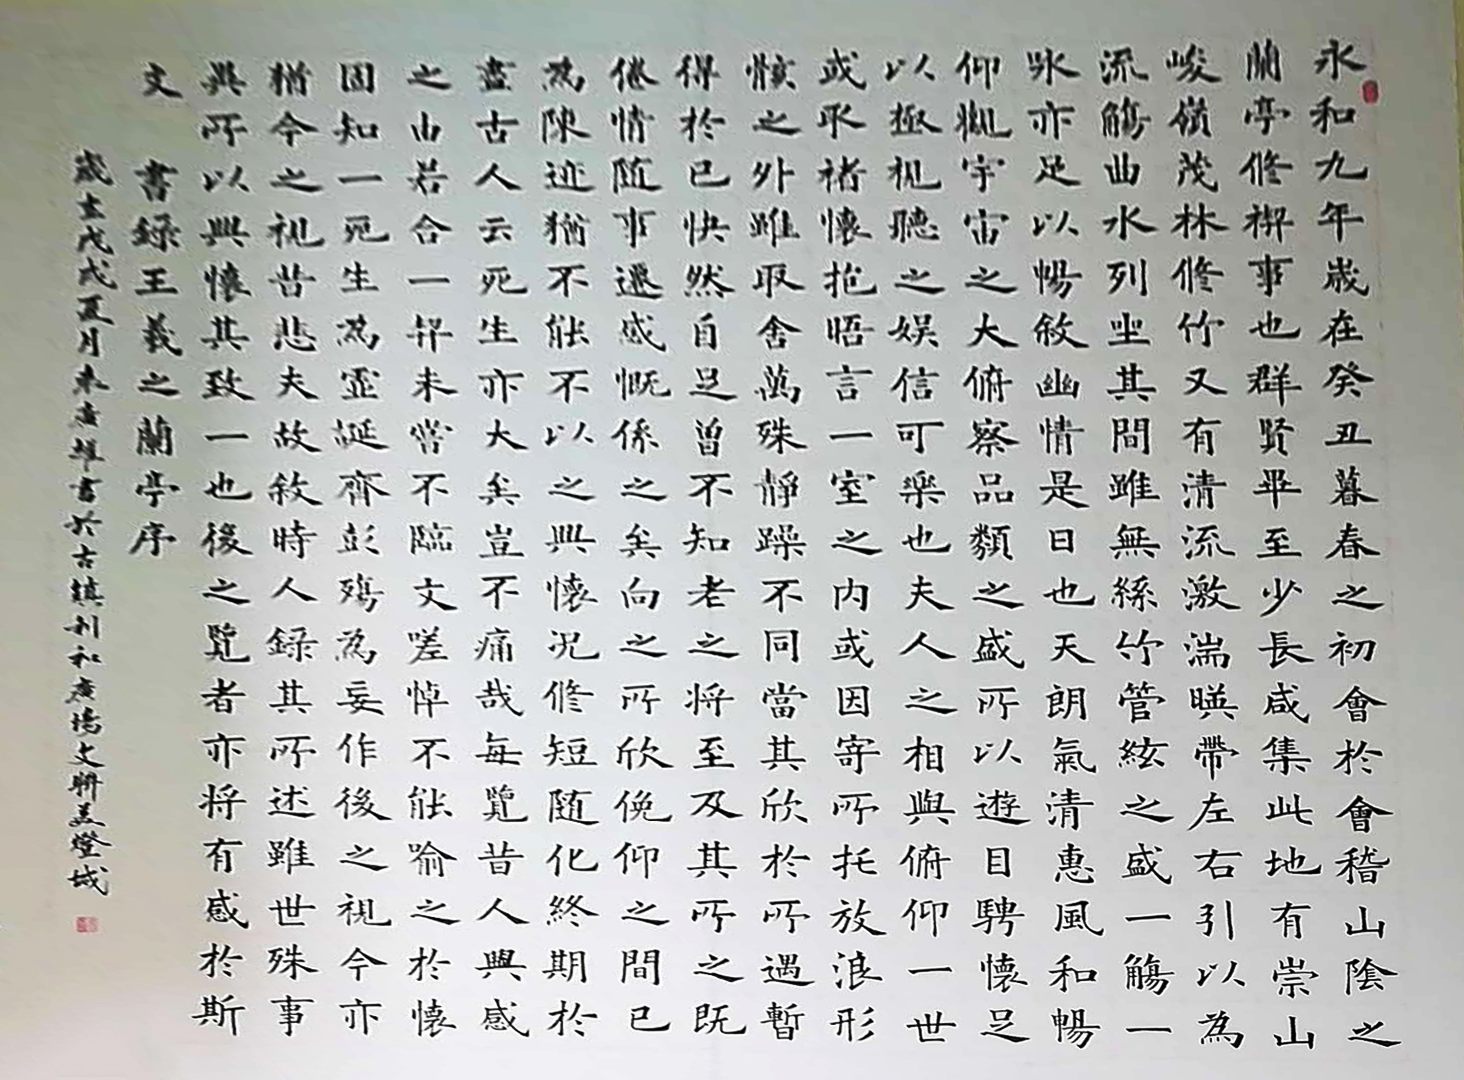 永和九年歲在癸丑暮春之初會於會稽山陰之
蘭亭修禊事也群賢畢至少長咸集此地有崇山
峻嶺茂林修竹又有清流激湍暎帶左右引以為
流觴曲水列坐其間雖無絲竹管絃之盛一觴一
詠亦足以暢敘幽情是日也天朗氣清惠風和暢
仰觀宇宙之大俯察品類之盛所以遊目騁懷足
以極視聽之娛信可樂也夫人之相與俯仰一世
或取諸懷抱晤言一室之內或因寄所托放浪形
骸之外雖取舍萬殊靜躁不同當其欣於所遇暫
得於己快然自足曾不知老之将至及其所之既
倦情随事遷感慨係之矣向之所欣俛仰之間已
為陳迹猶不能不以之興懷況修短随化終期於
盡古人云死生亦大矣豈不痛哉每覽昔人興感
之由若合一契未嘗不臨文嗟悼不能喻之於懷
固知一死生為虛誕齊彭殤為妄作後之視今亦
猶今之視昔悲夫故敘時人録其所述雖世殊事
異所以興懷其致一也後之覽者亦将有感於斯
文 書録王羲之蘭亭序
歲在戊戌夏月朱彥雄書於古鎮利和廣場文聯美燈城